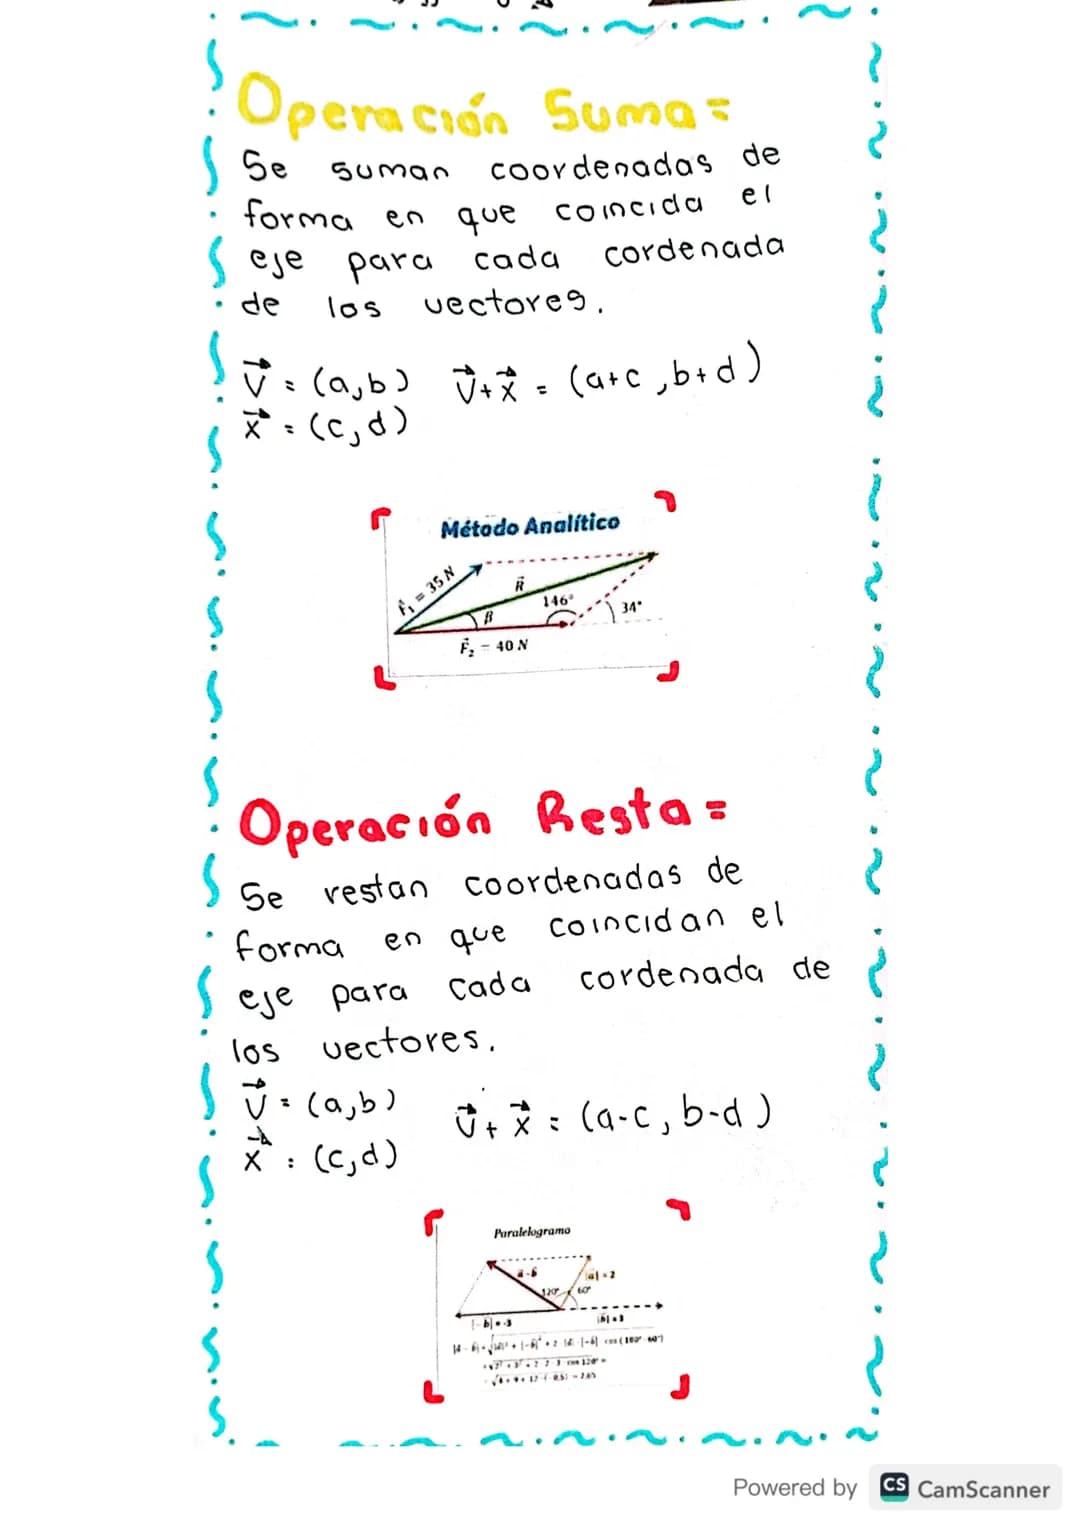 Operación Suma=
Se suman coordenadas de
forma en que coincida el
eje para cada cordenada
de los vectores.
V⃗ = (a,b) V⃗+x⃗ = (a+c,b+d)
x⃗ = (c,d)
Método Analítico
F⃗₁ = 35 N
R⃗
146°
34°
β
F⃗₂ = 40 N
Operación Resta=
Se restan coordenadas de
forma en que coincidan el
eje para cada cordenada de
los vectores.
V⃗ = (a,b) V⃗+ x⃗ = (a-c, b-d)
x⃗ = (c,d)
Paralelogramo
a-b
|a|=2
120°
60°
|-b|=-3
|b|=3
Powered by CS CamScanner